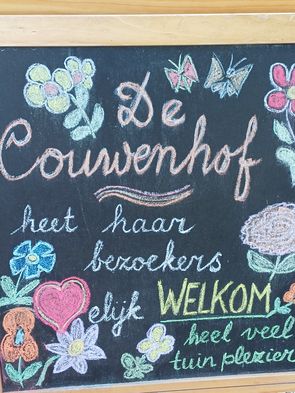 De
Couwenhof
heet haar
bezoekers
elijk WELKOM
heel veel
tuin plezier